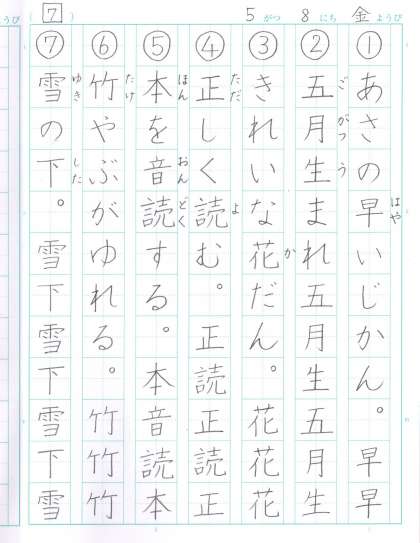 5がつ8にち金ようび
①あさの早いじかん。早早
はや
②五月生まれ五月生五月生
ごがつう
③きれいな花だん。花花花
か
④正しく読む。正読正読正
ただよ
⑤本を音読する。本音読本
ほんおんどく
⑥竹やぶがゆれる。竹竹竹
たけ
⑦雪の下。雪下雪下雪下雪
ゆきした
(7)
ようび